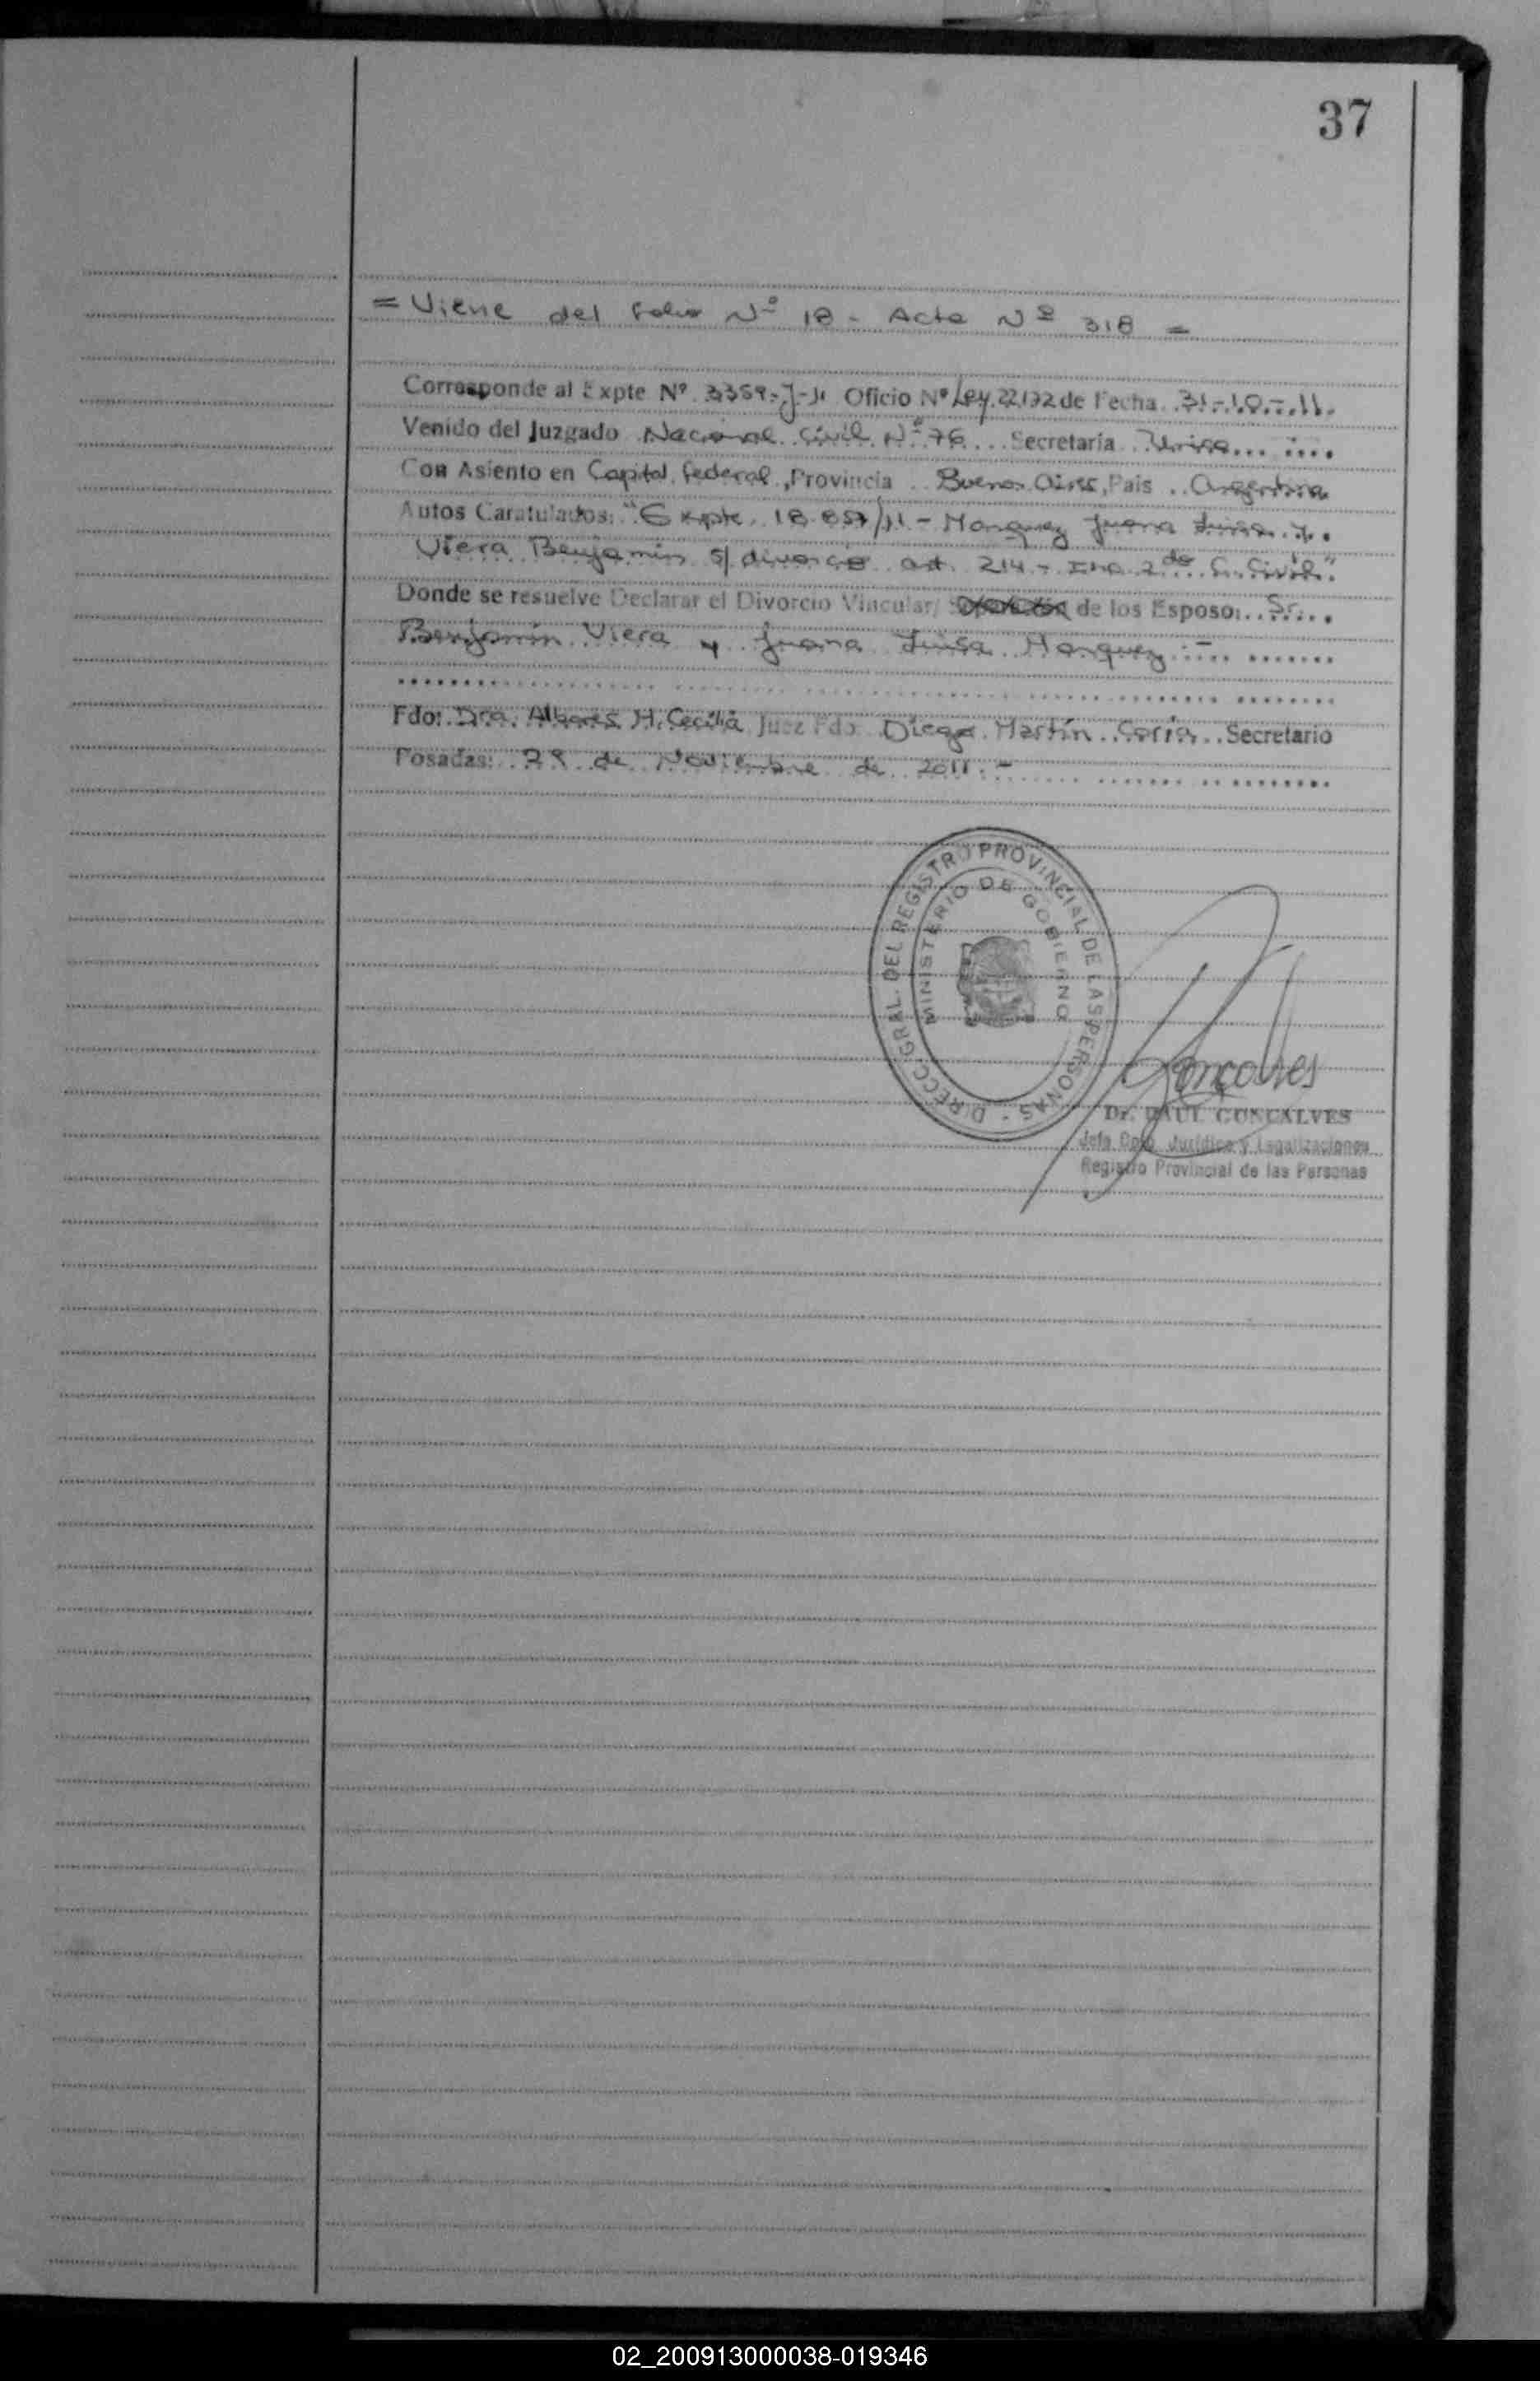 37
= Viene del Folio Nº 18 - Acta Nº 318 =
Corresponde al Expte Nº 3359-J-11 Oficio Nº Ley 22172 de Fecha 31-10-11.
Venido del Juzgado Nacional Civil Nº 76 Secretaría Unica
Con Asiento en Capital Federal, Provincia Buenos Aires, Pais Argentina
Autos Caratulados: "Expte. 18.857/11 - Marquez Juana Luisa y
Viera Benjamin s/ divorcio art. 214 - Inc. 2do C. Civil"
Donde se resuelve Declarar el Divorcio Vincular/ de los Esposo: Sr.
Benjamín Viera y Juana Luisa Marquez.-
Fdo: Dra. M. Cecilia Juez Fdo Diego Martín Coria Secretario
Posadas: 29 de Noviembre de 2011.-
DIRECC. GRAL. DEL REGISTRO PROVINCIAL DE LAS PERSONAS -
MINISTERIO DE GOBIERNO
Goncalves
Dr. RAUL GONCALVES
Jefe Dpto. Jurídico y Legalizaciones
Registro Provincial de las Personas
02_200913000038-019346